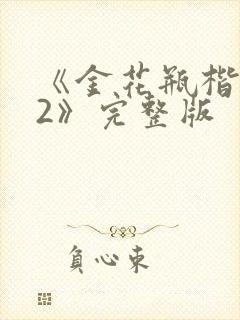 《金花瓶楷
2》完整版
负心束